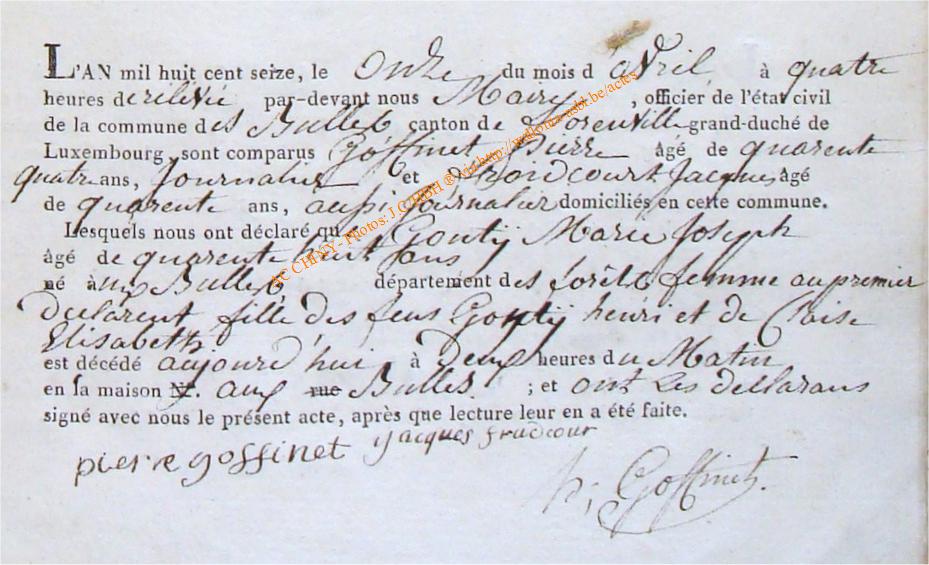 L'AN mil huit cent seize, le Onze du mois d'avril, à quatre
heures de relevée par-devant nous Maire, officier de l'état civil
de la commune des Bulles canton de florenville grand-duché de
Luxembourg sont comparus Goffinet Pierre âgé de quarente
quatre ans, Journalier et froidcourt Jacques âgé
de quarente ans, aussi journalier domiciliés en cette commune.
Lesquels nous ont déclaré que Gontÿ Marie Joseph
âgé de quarente huit ans
né à aux Bulles département des forêts femme au premier
declarent fille des feus Gontÿ henri et de Claise
Elisabeth
est décédé aujourd'hui à deux heures du Matin
en la maison N°. aux rue Bulles ; et ont les declarans
signé avec nous le présent acte, après que lecture leur en a été faite.
pierre goffinet jacques frudcour
Goffinet.
SCCHINY - Photos: J.C. ® via http://